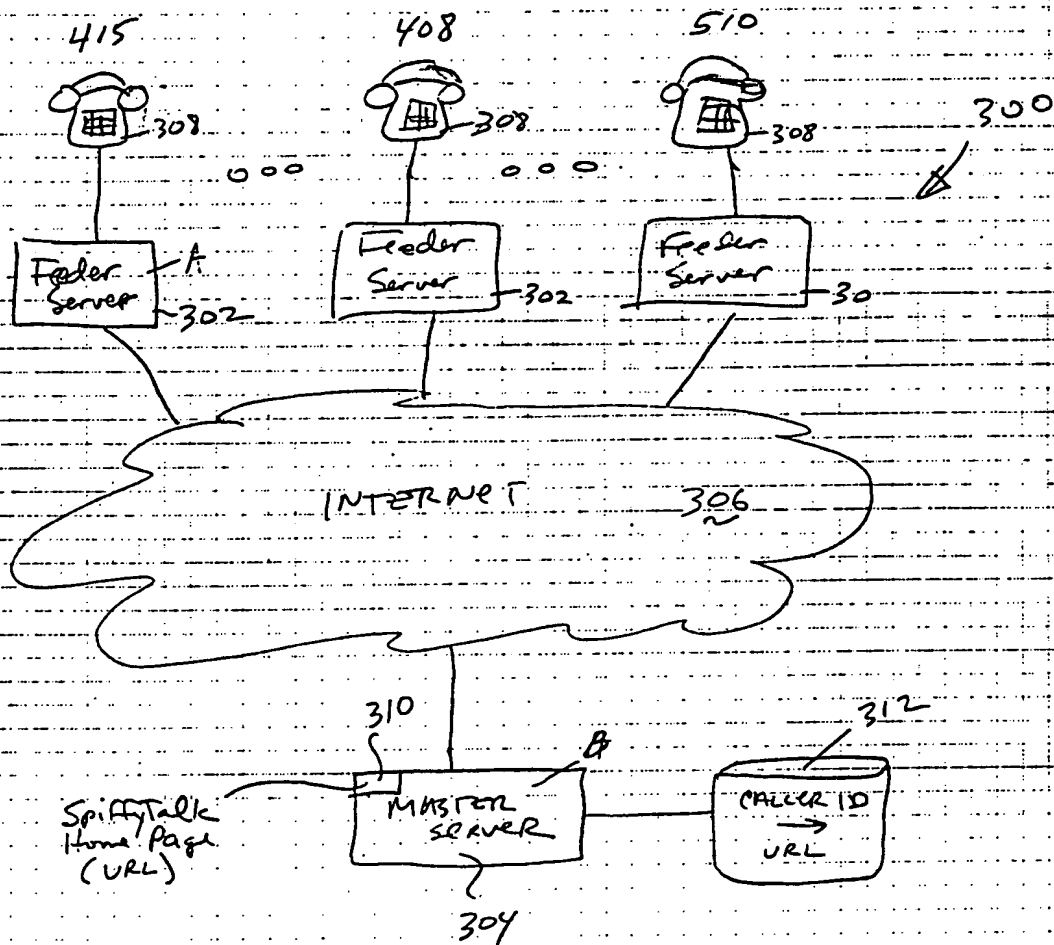 415
408
510
308
308
308
300
Feeder
Server
A
302
Feeder
Server
302
Feeder
Server
30
INTERNET
306
310
312
SpiffyTalk
Home Page
(URL)
MASTER
SERVER
B
CALLER ID
→
URL
304